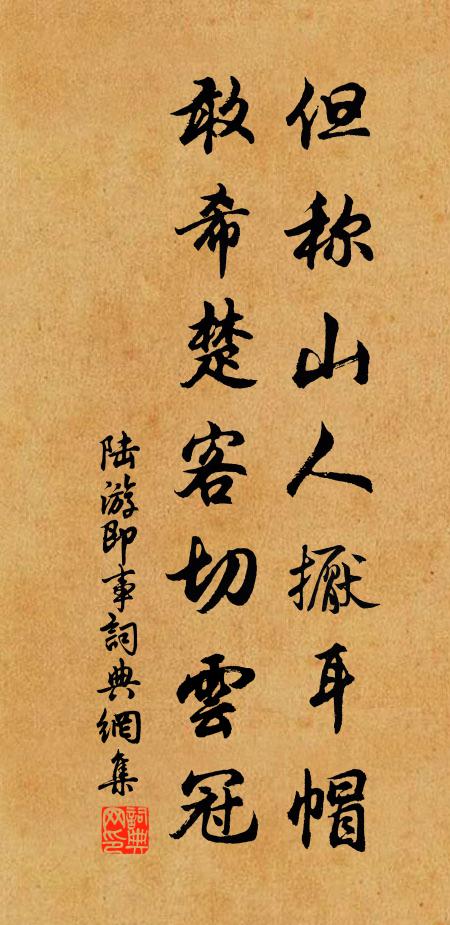 但称山人擫耳帽
敢希楚客切雲冠
陸游即事詞典網集
詞典网印